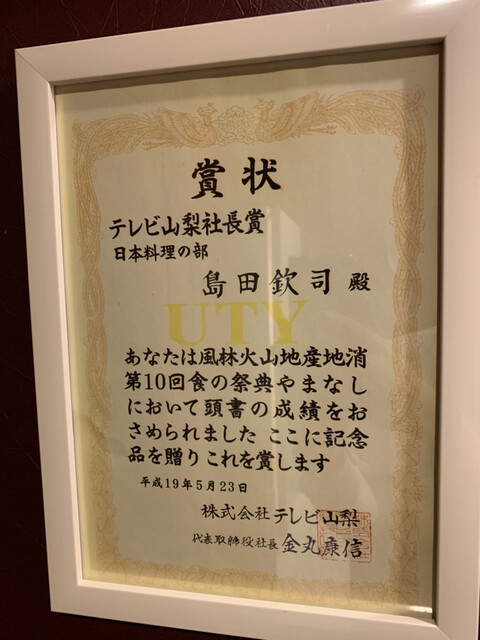 賞状
テレビ山梨社長賞
日本料理の部
島田欽司 殿
UTY
あなたは風林火山地産地消
第10回食の祭典やまなし
において頭書の成績をお
さめられました ここに記念
品を贈りこれを賞します
平成19年5月23日
株式会社テレビ山梨
代表取締役社長 金丸康信